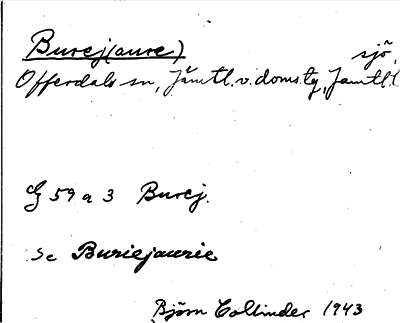 Burej(aure) sjö,
Offerdals sn, Jämtl. v. doms.tg, Jämtl. l
59 a 3 Burej.
Se Buriejaurie
Björn Collinder 1943